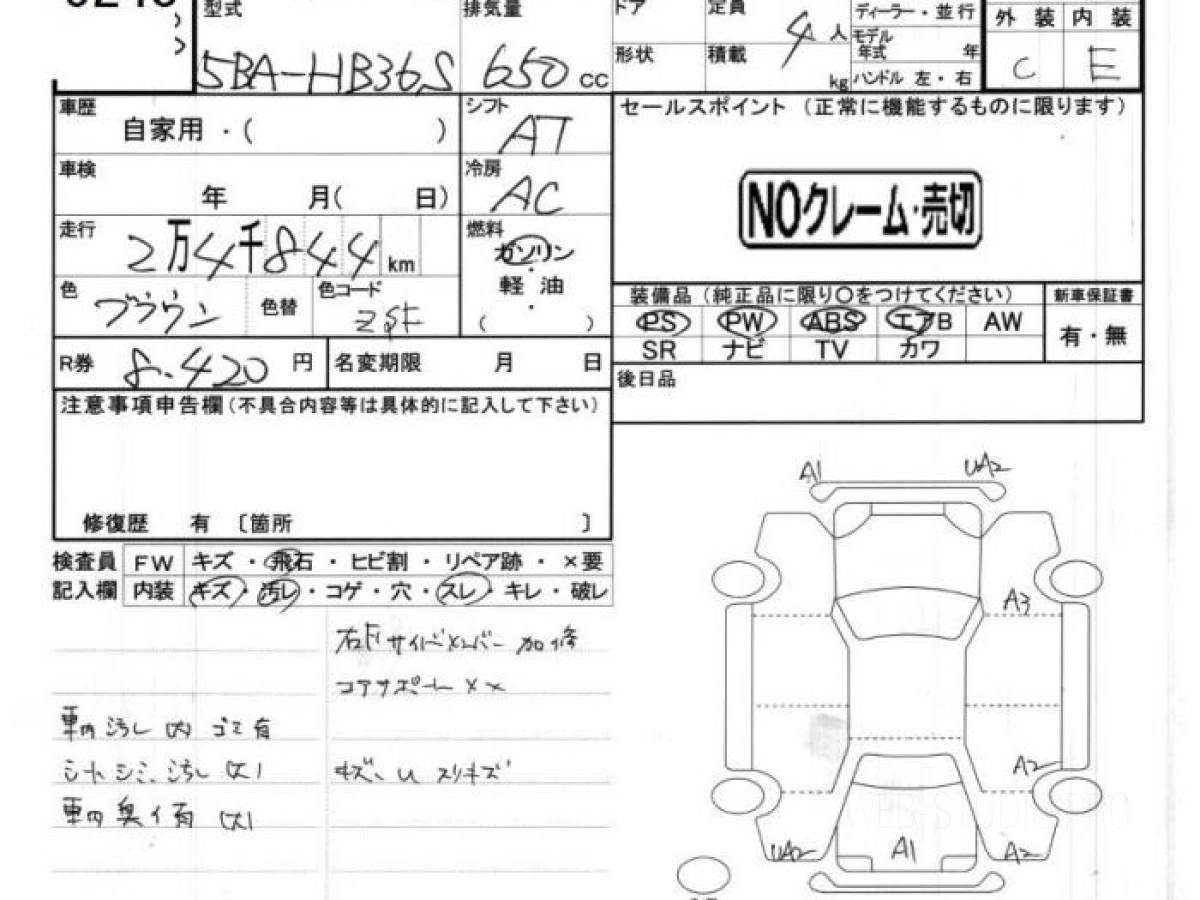 型式 排気量 ドア 定員 4人 ディーラー・並行 外装 内装
5BA-HB36S 650cc 形状 積載 kg モデル年式 年 C E
ハンドル 左・右
車歴 自家用・( ) シフト AT セールスポイント (正常に機能するものに限ります)
車検 年 月( 日) 冷房 AC
NOクレーム・売切
走行 2万4千844km 燃料 ガソリン・軽油・( )
色 ブラウン 色替 色コード
装備品(純正品に限り○をつけてください) 新車保証書
PS PW ABS エアB AW 有・無
SR ナビ TV カワ
R券 8.420円 名変期限 月 日
後日品
注意事項申告欄(不具合内容等は具体的に記入して下さい)
修復歴 有 〔箇所 〕
検査員 FW キズ・飛石・ヒビ割・リペア跡・×要
記入欄 内装 キズ・汚レ・コゲ・穴・スレ・キレ・破レ
サイドメンバー 加修
コアサポート ××
車内汚レ 大 ゴミ有
シート シミ、汚レ 大
キズ、U スリキズ
車内 臭イ有 大
A1 UA2
A3
A2
UA2 A1 A2